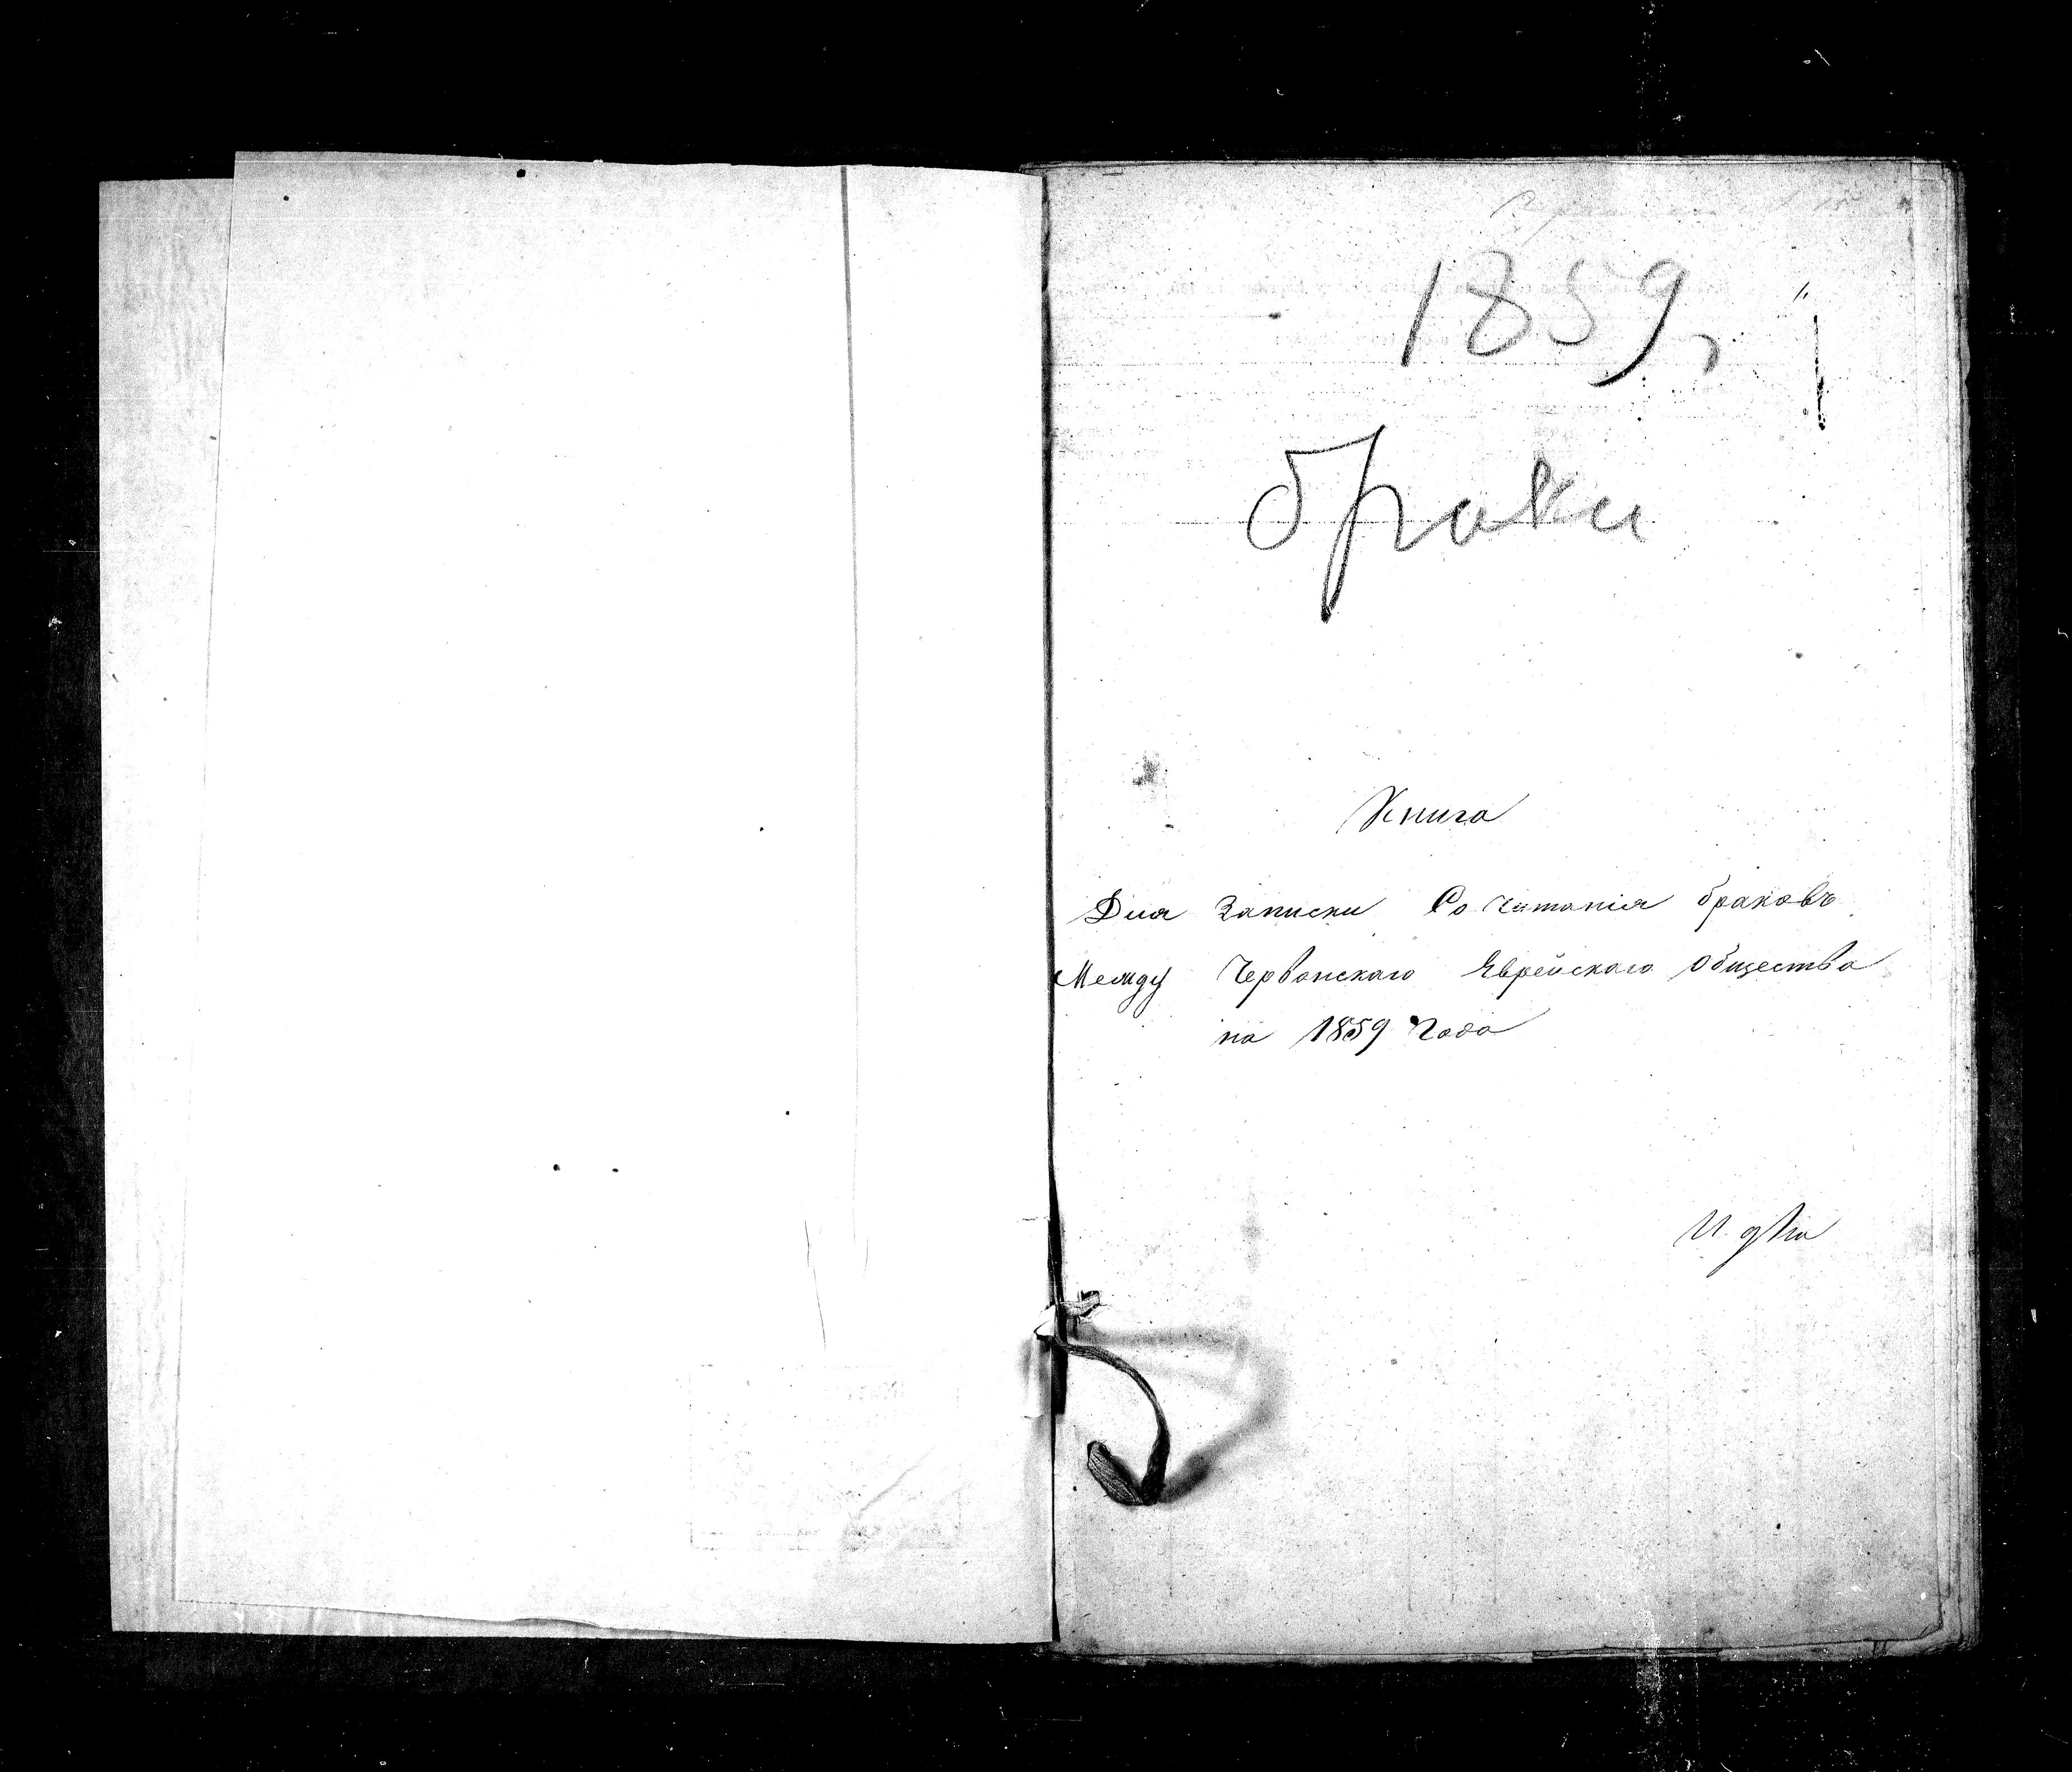 1859,
браки
Книга
Для Записки Сочитанія браковъ
Между Червонскаго Еврейскаго Общества
на 1859 Года